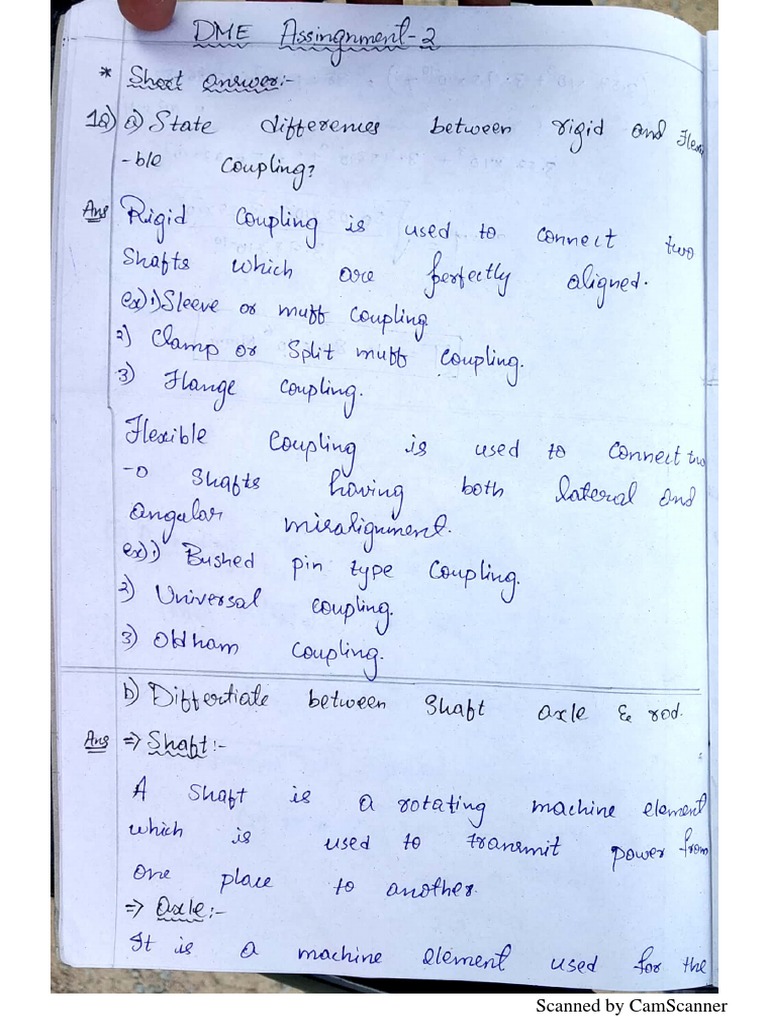 DME Assingnment-2
* Short answer:-
1Q) a) State differences between rigid and Flexi
-ble coupling?
Ans Rigid coupling is used to connect two
shafts which are perfectly aligned.
ex) 1) Sleeve or muff coupling
2) Clamp or Split muff coupling.
3) Flange coupling.
Flexible coupling is used to connect tw
-o shafts having both lateral and
angular misalignment.
ex) 1) Bushed pin type coupling.
2) Universal coupling.
3) Oldham coupling.
b) Differtiate between shaft axle & rod.
Ans ⇒ Shaft:-
A shaft is a rotating machine element
which is used to transmit power from
one place to another.
⇒ Axle:-
It is a machine element used for the
Scanned by CamScanner